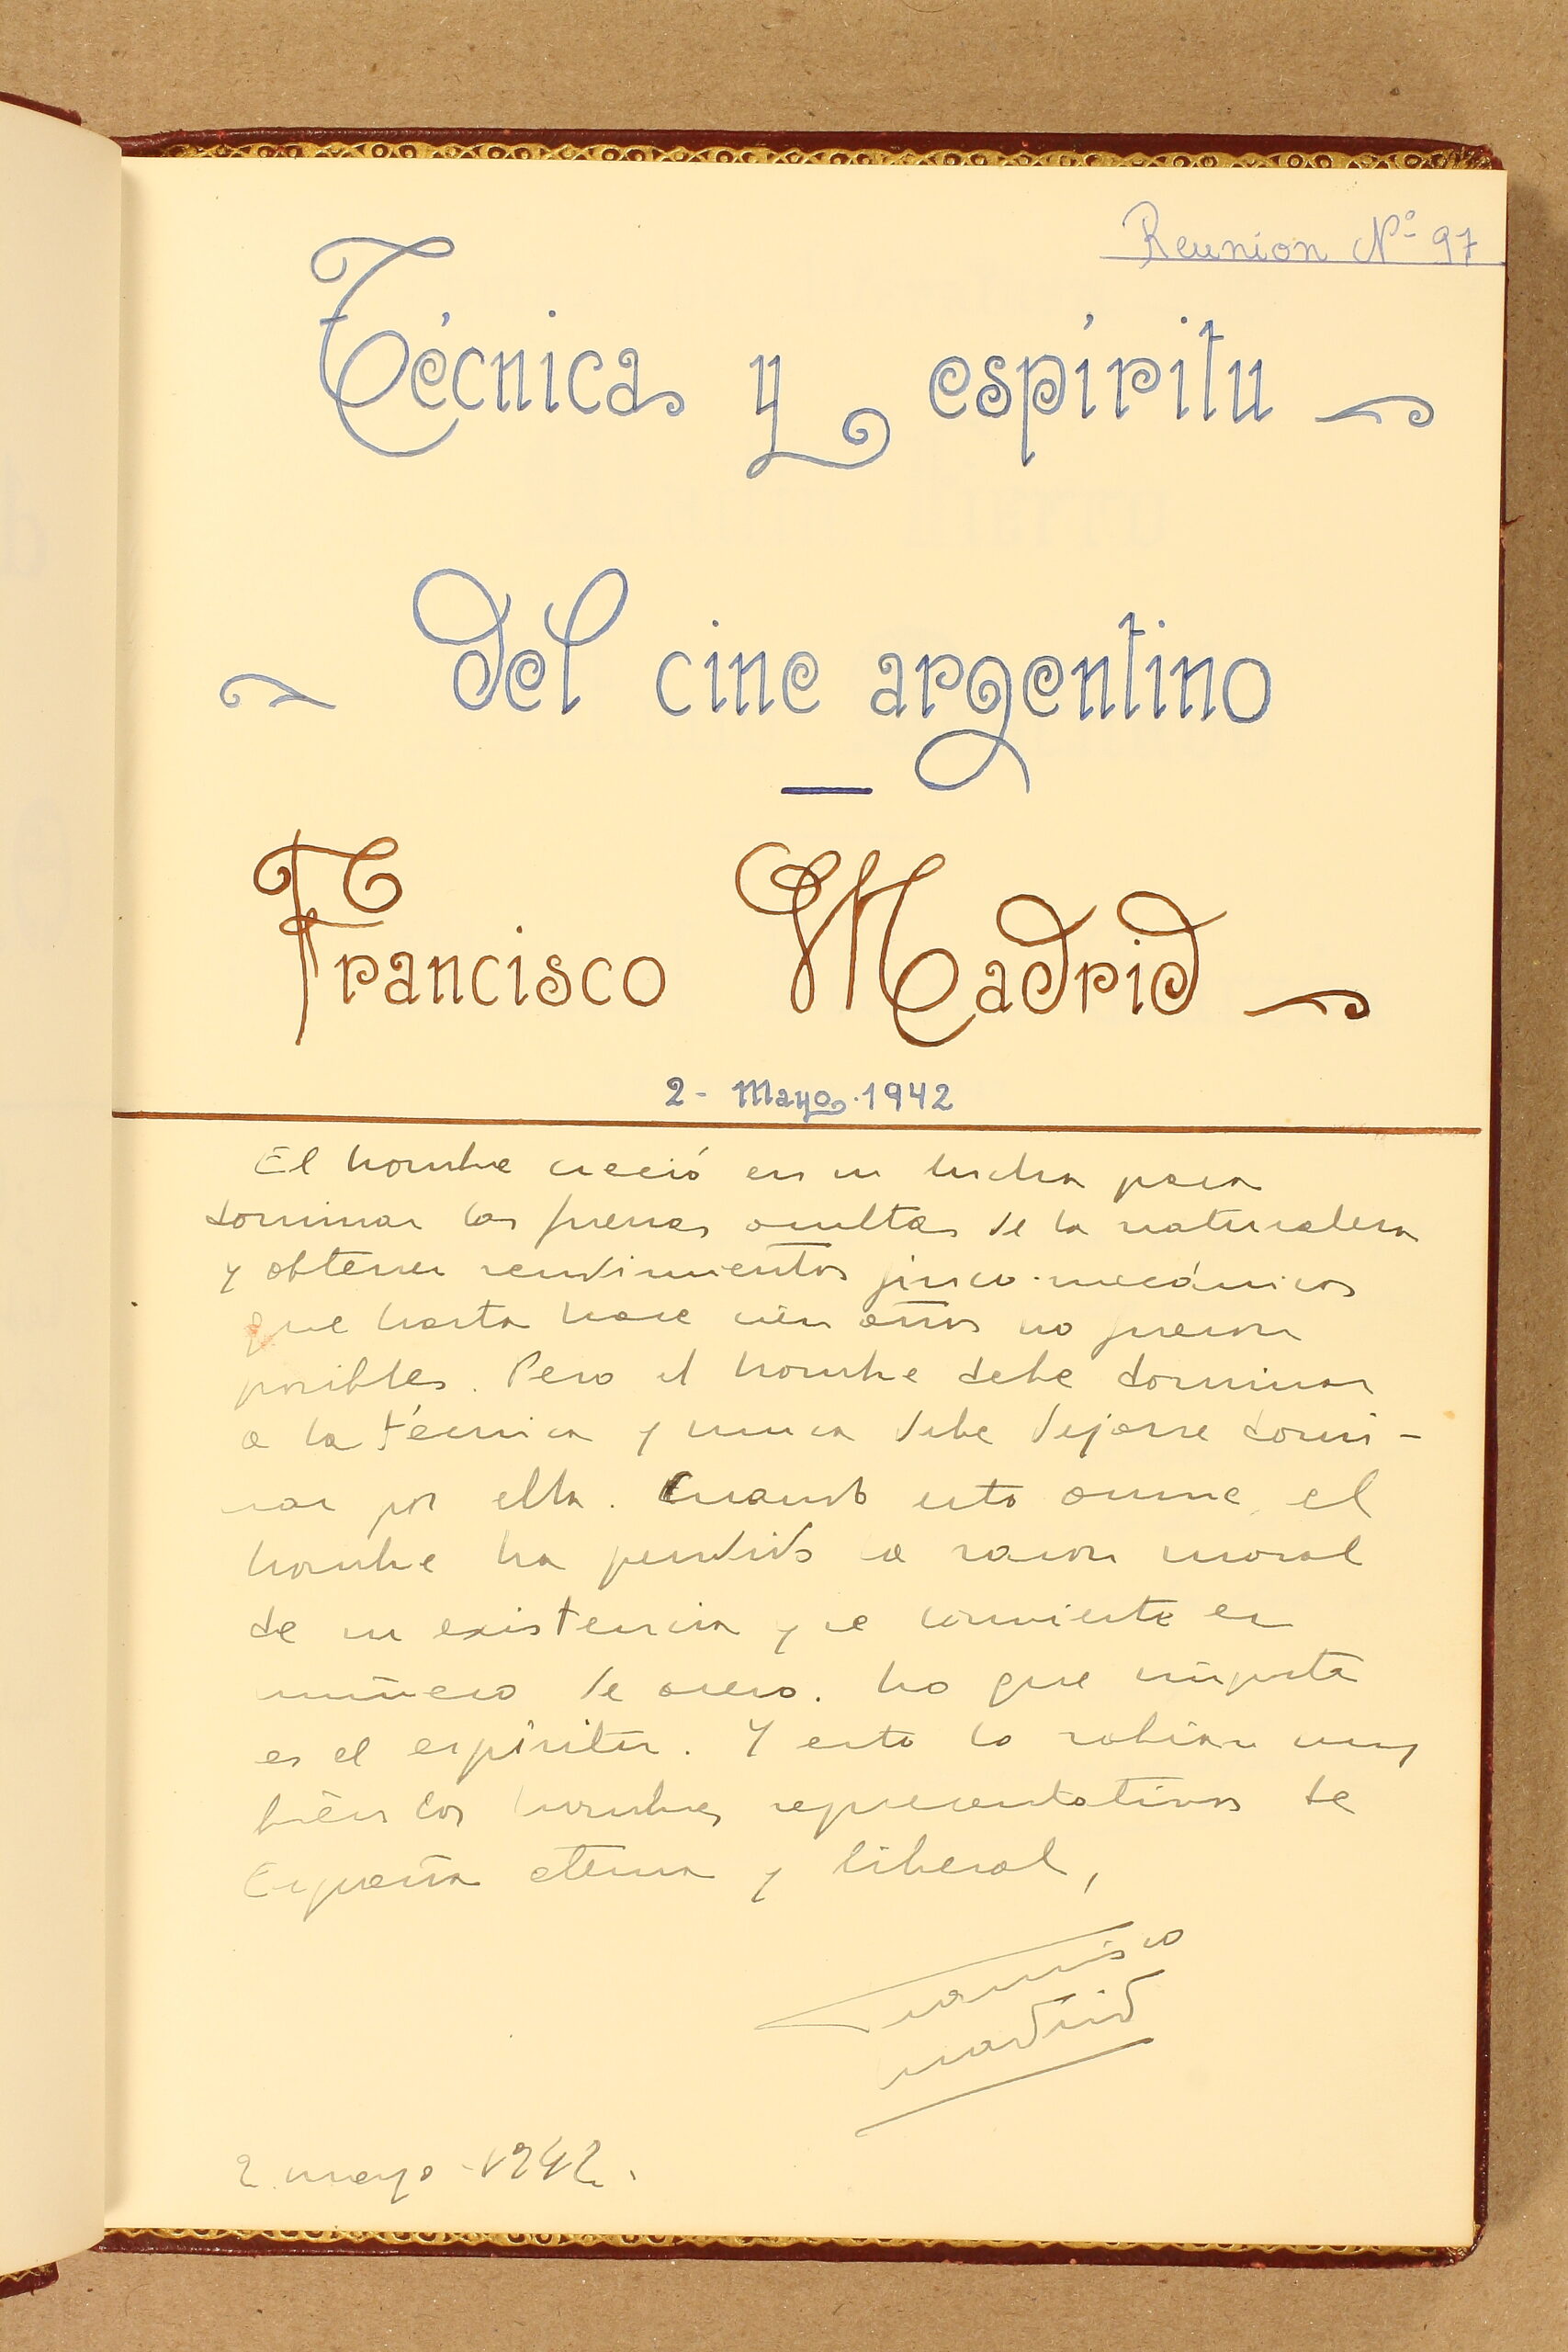 Reunion Nº 97
Técnica y espíritu
del cine argentino
Francisco Madrid
2 - Mayo. 1942
El hombre creció en su lucha para
dominar las fuerzas ocultas de la naturaleza
y obtener rendimientos físico-mecánicos
que hasta hace cién años no fueron
posibles. Pero el hombre debe dominar
a la técnica y nunca debe dejarse domi-
nar por ella. Cuando esto ocurre, el
hombre ha perdido la razon moral
de su existencia y se convierte en
muñeco de acero. Lo que importa
es el espíritu. Y esto lo sabían muy
bién los hombres representativos de
España eterna y liberal,
Francisco
Madrid
2 mayo - 1942.